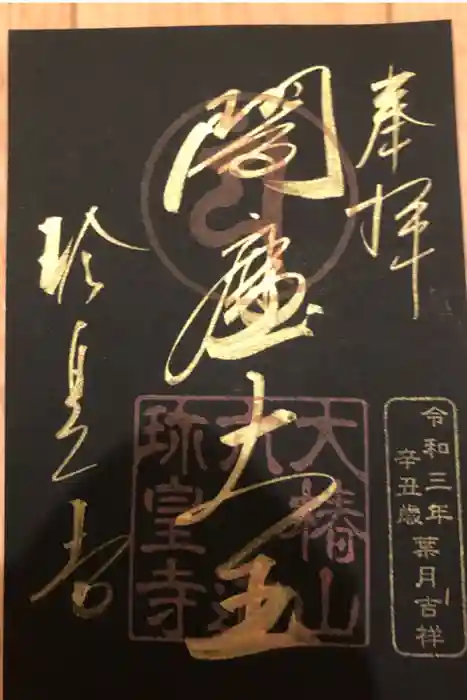 奉拝
閻魔大王
珍皇寺
大椿山
六道
珎皇寺
令和三年
辛丑歳
葉月吉祥